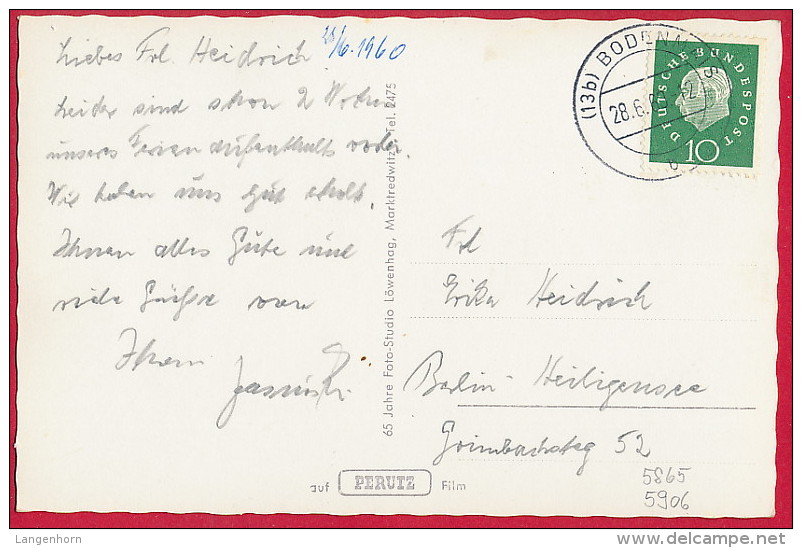 Liebes Frl. Heidrich 28/6. 1960
Leider sind schon 2 Wochen
unseres Ferienaufenthalts vorbei.
Wir haben uns gut erholt.
Ihnen alles Gute und
viele Grüße von
Ihrem
65 Jahre Foto-Studio Löwenhag, Marktredwitz, Tel. 2475
(13b) BODENMAIS
28.6.60
b
DEUTSCHE BUNDESPOST
10
Frl
Erika Heidrich
Berlin-Heiligensee
52
5865
5906
auf PERUTZ Film
Langenhorn
www.delcampe.net